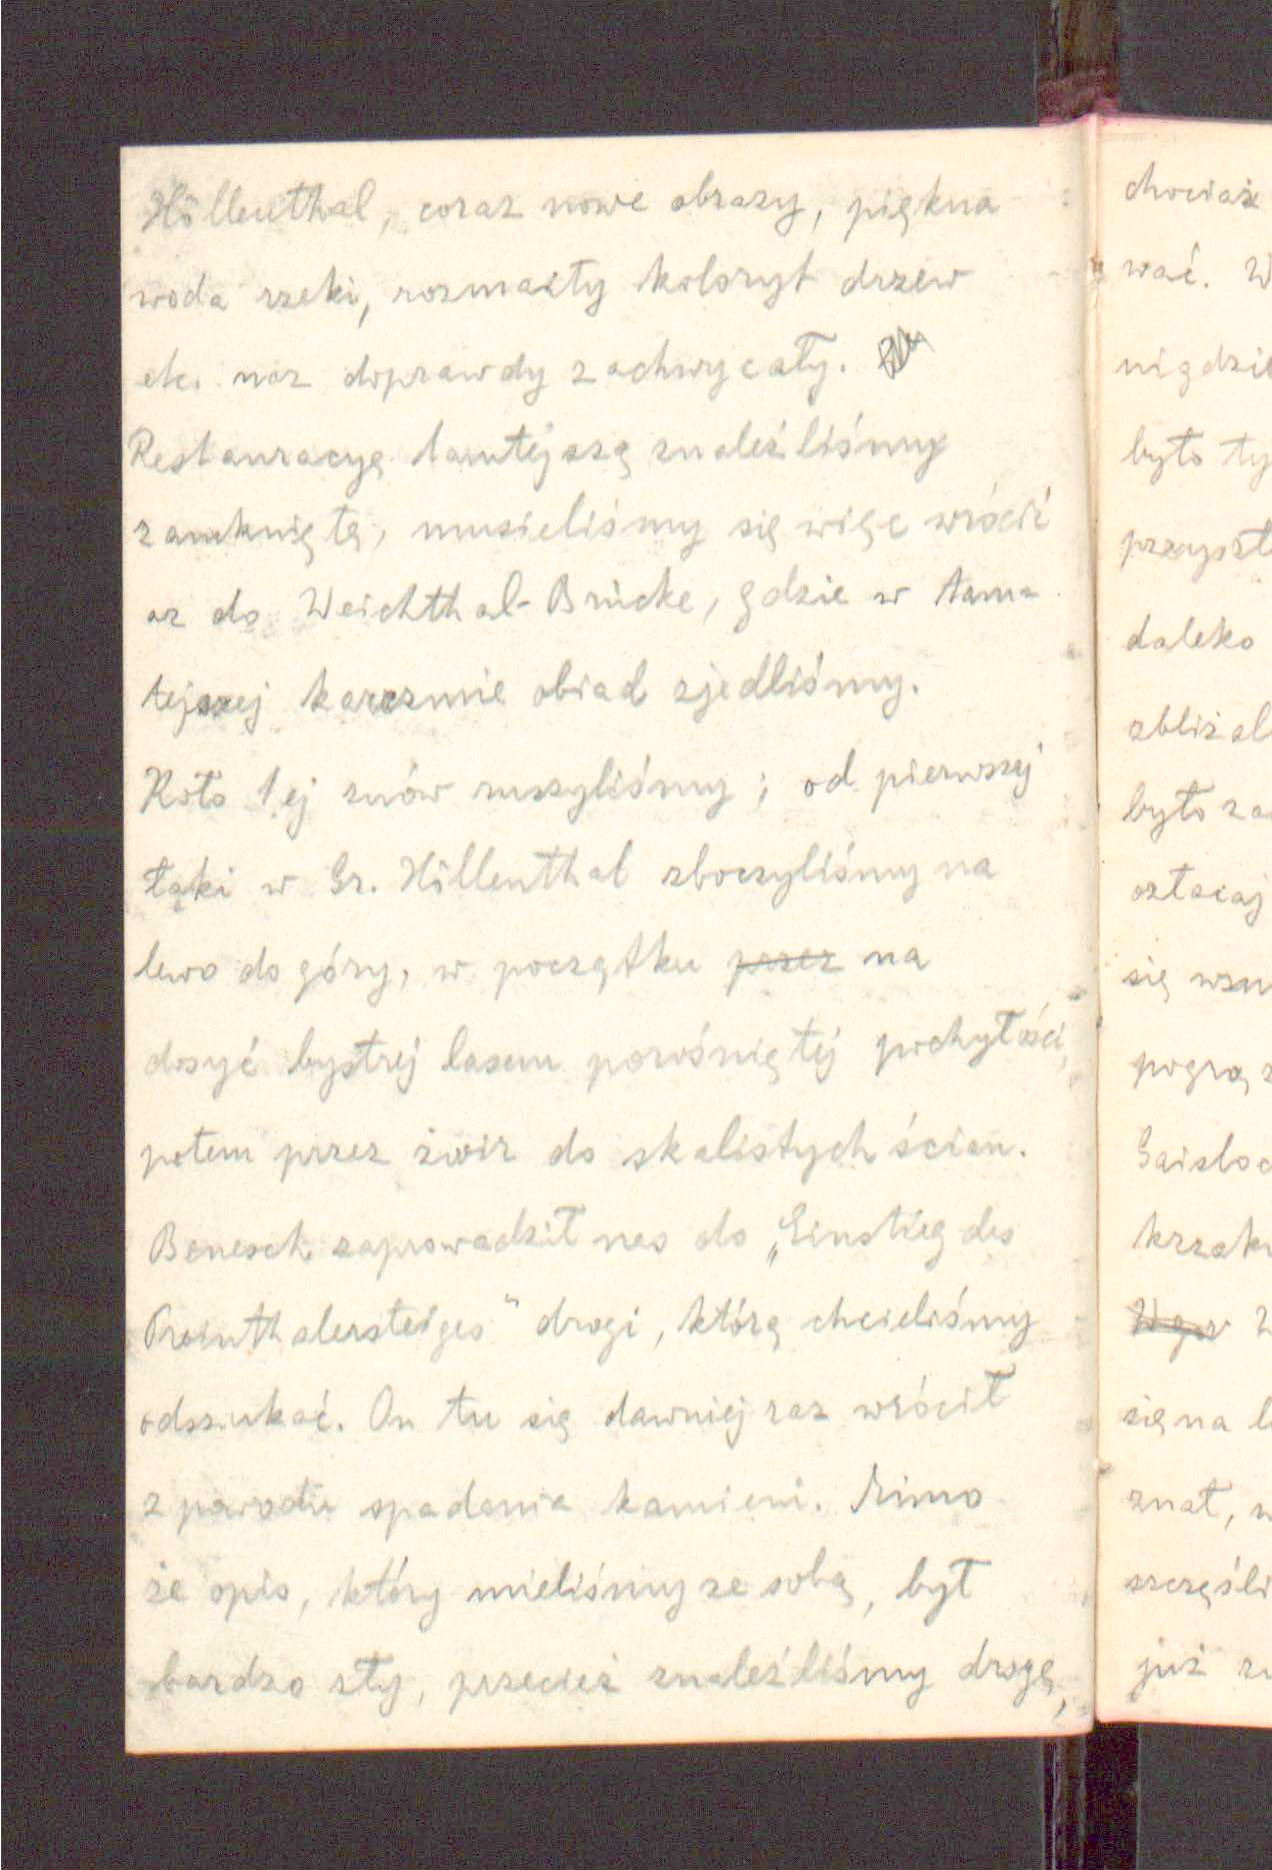 Höllenthal, coraz nowe obrazy, piękna
woda rzeki, rozmaity koloryt drzew
etc. nas doprawdy zachwycały.
Restauracyę tamtejszą znaleźliśmy
zamkniętą, musieliśmy się więc wrócić
az do Weichthal-Brücke, gdzie w tam=
tejszej karczmie obiad zjedliśmy.
Koło 1ej znów ruszyliśmy; od pierwszej
łąki w Gr. Höllenthal zboczyliśmy na
lewo do góry, w początku przez na
dosyć bystrej lasem porośniętéj pochyłości,
potem przez żwir do skalistych ścian.
Benesch zaprowadził nas do „Einstieg des
Preinthalersteiges" drogi, którą chcieliśmy
odszukać. On tu się dawniej raz wrócił
z powodu spadania kamieni. Mimo
że opis, który mieliśmy ze sobą, był
bardzo zły, przecież znaleźliśmy drogę,
chociaż
wać. W
nigdzie
było ty
przyszł
daleko
zbliżal
było za
ozłacaj
się wzn
pogrąż
Gaisloc
krzaku
się na l
znał, w
szczęśli
już zu